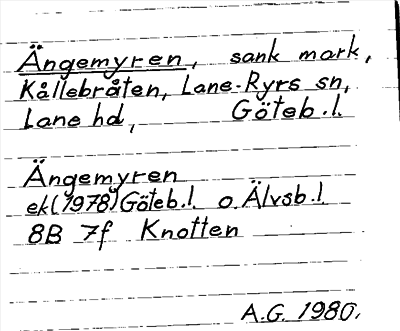 Ängemyren, sank mark,
Kållebråten, Lane-Ryrs sn,
Lane hd, Göteb.l.
Ängemyren
ek(1978)Göteb.l. o. Älvsb.l.
8B 7f Knotten
A.G. 1980.